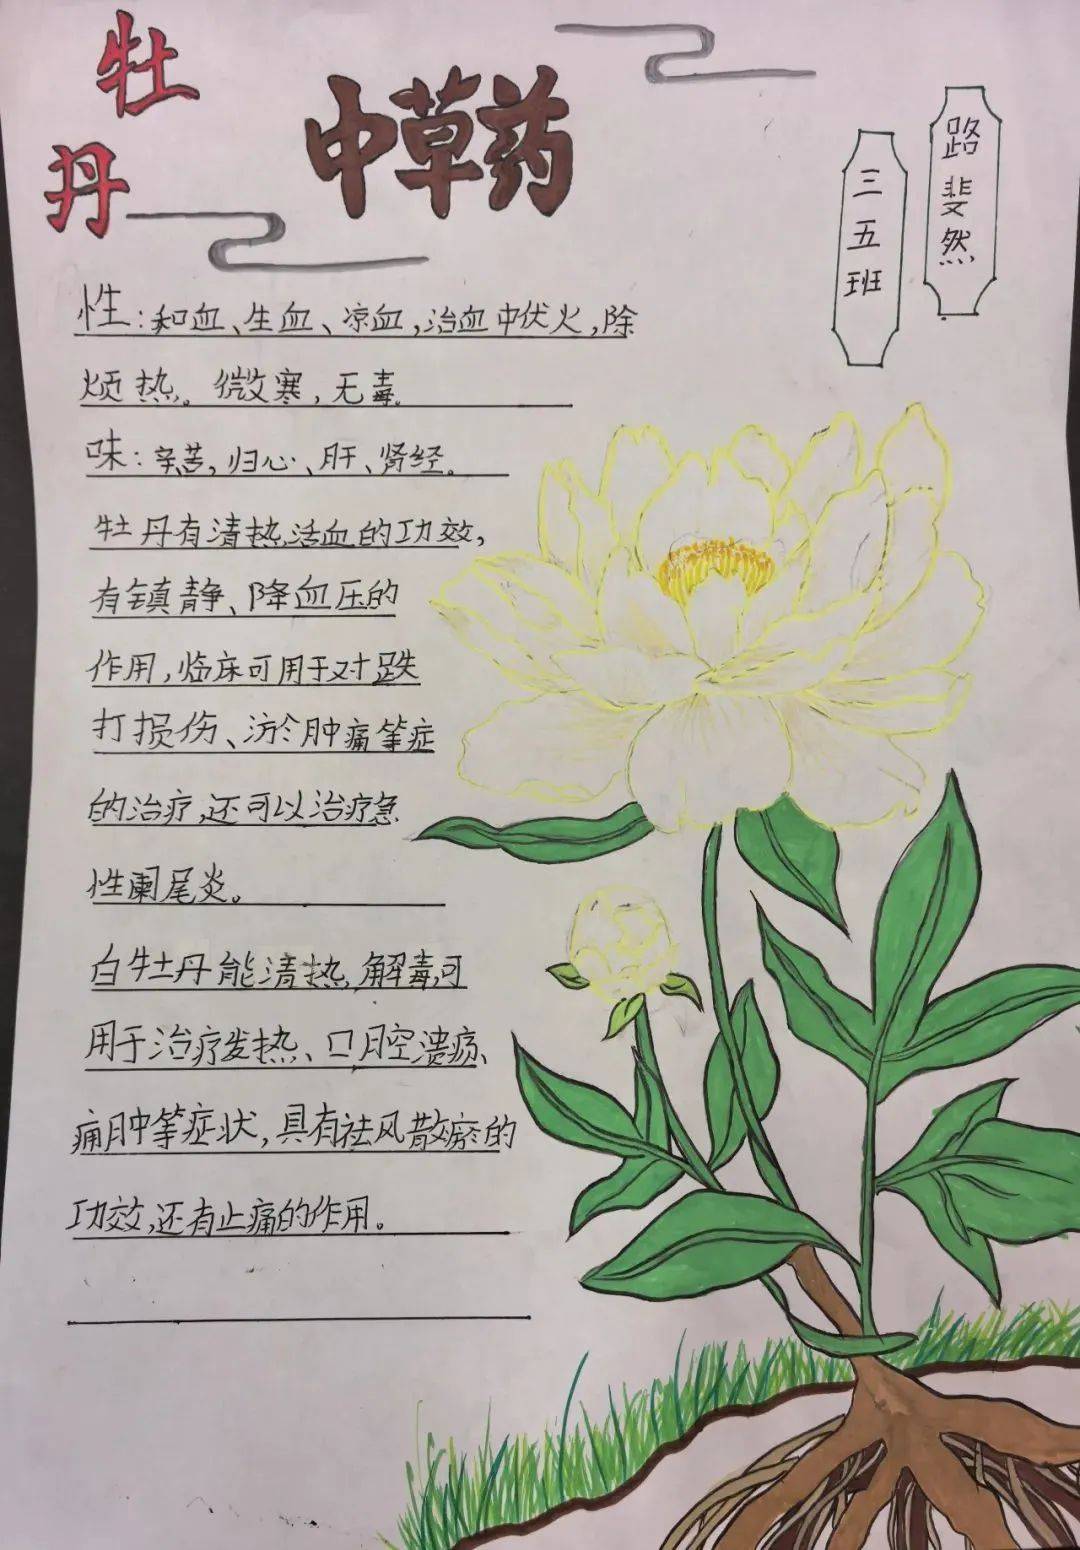 牡丹
中草药
路斐然
三五班
性：和血、生血、凉血，治血中伏火，除
烦热。微寒，无毒。
味：辛苦，归心、肝、肾经。
牡丹有清热活血的功效，
有镇静、降血压的
作用，临床可用于对跌
打损伤、淤肿痛等症
的治疗，还可以治疗急
性阑尾炎。
白牡丹能清热，解毒，可
用于治疗发热、口腔溃疡、
痛肿等症状，具有祛风散瘀的
功效，还有止痛的作用。